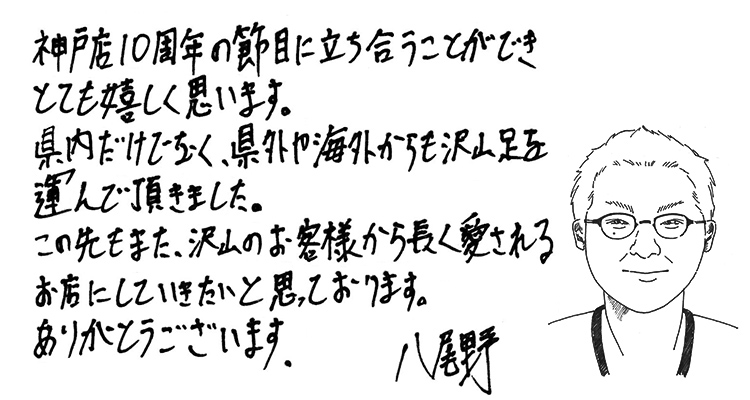 神戸店10周年の節目に立ち合うことができ
とても嬉しく思います。
県内だけでなく、県外や海外からも沢山足を
運んで頂きました。
この先もまた、沢山のお客様から長く愛される
お店にしていきたいと思っております。
ありがとうございます.
八尾野